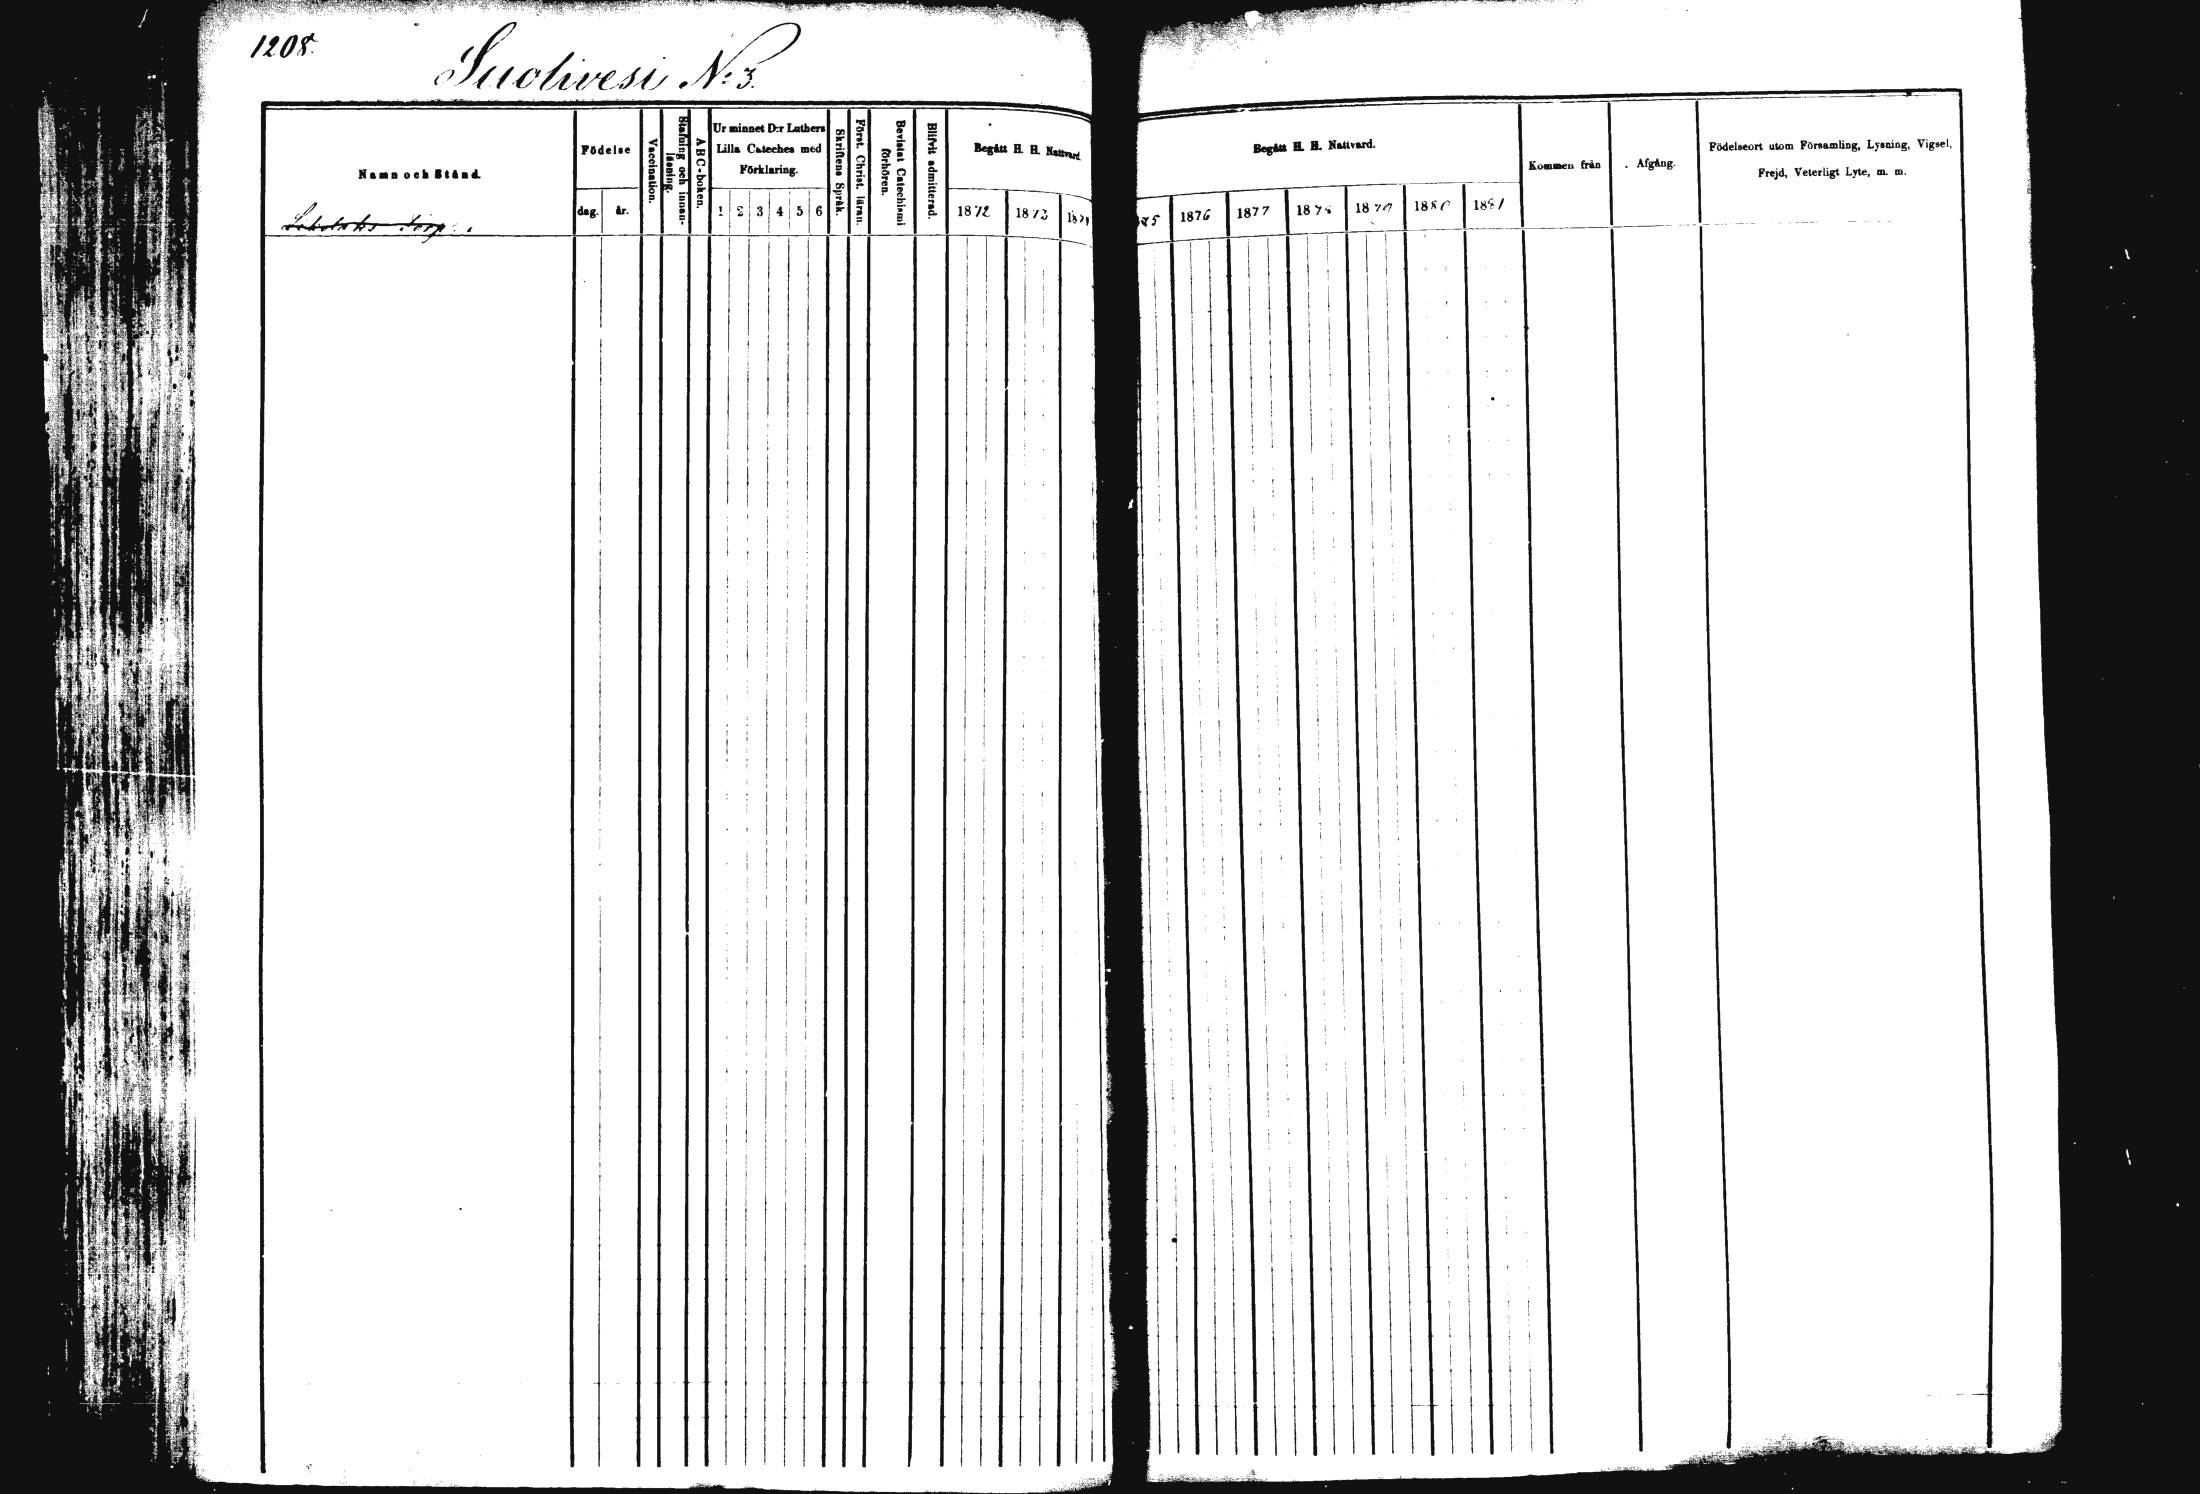 1208.
Suolivesi No 3.
Namn och Stånd.
Födelse
dag. år.
Vaccination.
Stafning och innan-
läsning.
ABC-boken.
Ur minnet D:r Luthers
Lilla Cateches med
Förklaring.
1 2 3 4 5 6
Skriftens Språk.
Först. Christ. läran.
Bevistat Catechismi
förhören.
Blifvit admitterad.
Begått H. H. Nattvard.
1872 1873 187
Begått H. H. Nattvard.
85 1876 1877 1878 1879 1880 1881
Kommen från
Afgång.
Födelseort utom Församling, Lysning, Vigsel,
Frejd, Veterligt Lyte, m. m.